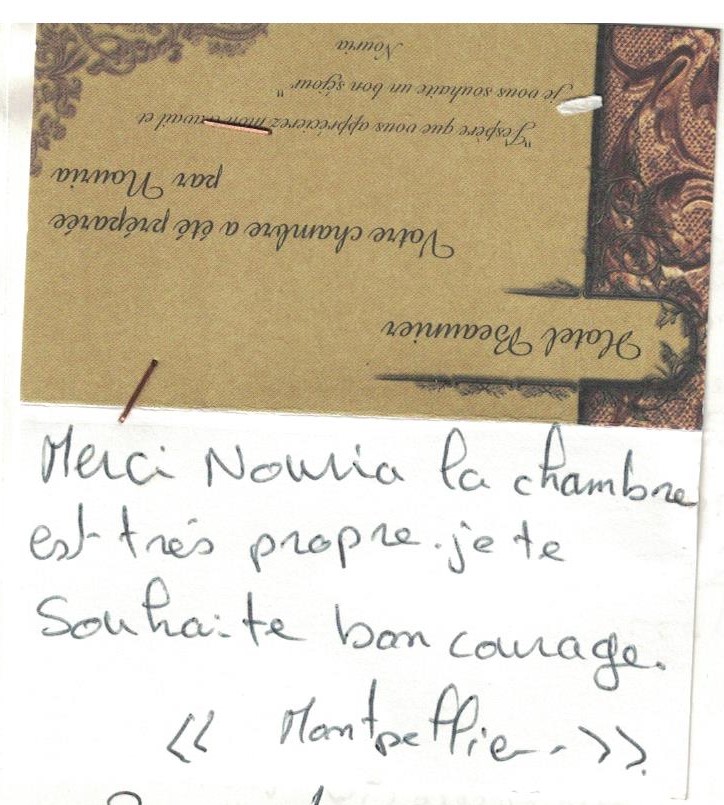 Hotel Beaunier
Votre chambre a été préparée
par Nouria
"J'espère que vous apprécierez mon travail et
je vous souhaite un bon séjour"
Nouria
Merci Nouria la chambre
est trés propre. je te
Souhaite bon courage.
<< Montpellier. >>